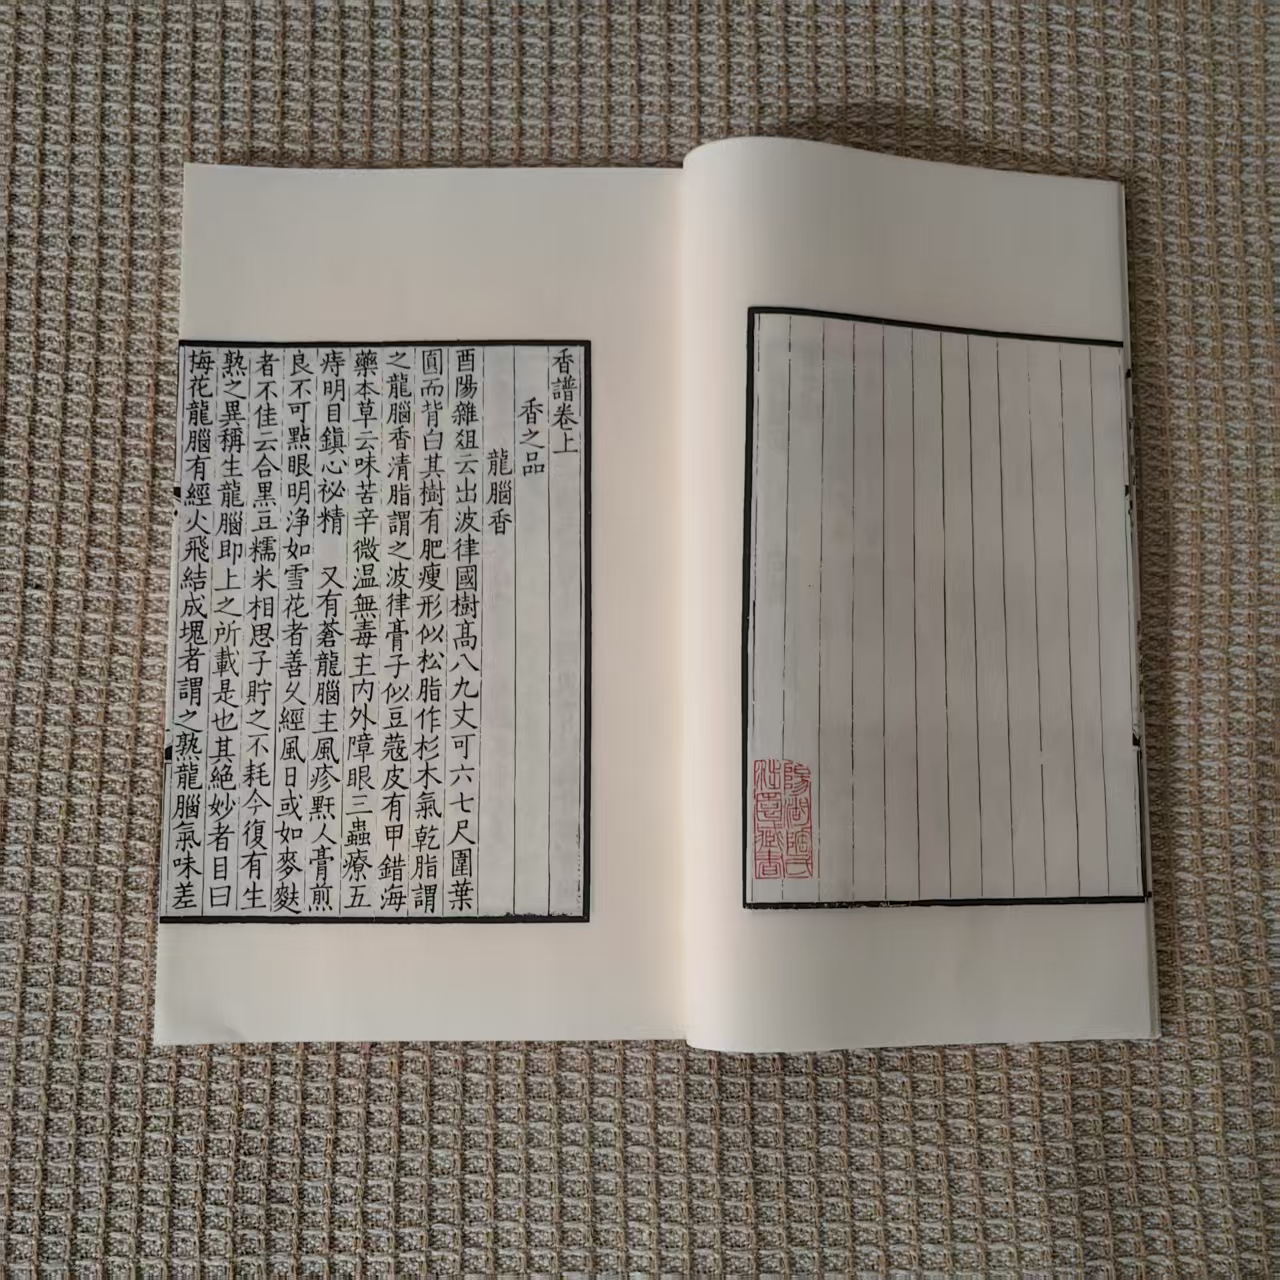 香譜卷上
香之品
龍腦香
酉陽雜俎云出波律國樹髙八九丈可六七尺圍葉
圓而背白其樹有肥瘦形似松脂作杉木氣乾脂謂
之龍腦香清脂謂之波律膏子似豆蔻皮有甲錯海
藥本草云味苦辛微温無毒主内外障眼三蟲療五
痔明目鎮心祕精　又有蒼龍腦主風疹䵟人膏煎
良不可點眼明浄如雪花者善久經風日或如麥麩
者不佳云合黑豆糯米相思子貯之不耗今復有生
熟之異稱生龍腦即上之所載是也其絶妙者目曰
梅花龍腦有經火飛結成塊者謂之熟龍腦氣味差
陽湖陶氏
涉園藏書